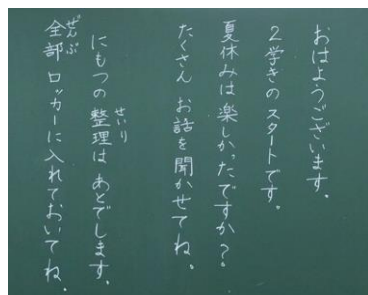 おはようございます。
2学きのスタートです。
夏休みは楽しかったですか？
たくさん お話を聞かせてね。
にもつの 整理は あとでします。
全部 ロッカーに入れておいてね。
せいり
ぜんぶ